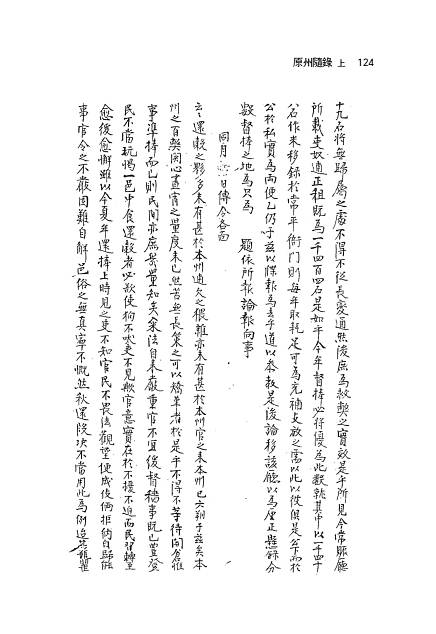 原州隨錄 上 124
十九石將無歸屬之處不得不從長變通然後庶爲之實效是乎所見今常賑廳
所載吏奴逋正租旣爲一千四百四石是如乎今年督捧必得優爲此數就其中以一千四十
八石作米移錄於常平衙門則每年取耗足可爲充補支放之需以此以彼俱是公下而於
公於私實爲兩便乙仍于玆以牒報爲去乎道以參敎是後論移該廳以爲正懸錄分
數督捧之地爲只爲 題依所報論報向事
同月 日傳令各面
云云還穀之夥多未有甚於本州逋欠之猥雜亦未有甚於本州官之來本州已六朔于玆矣本
州之百弊閔心晝宵之量度未已然苦無長策之可以矯革者於是乎不得不等待開倉惟
事準捧而已則民間亦庶幾量知矣糶法自來嚴重官不宜緩督穡事旣已豊登
民不當玩愒一邑中食還穀者必欲使狗不吠吏不見官意實在於不擾不迫而民習轉至
愈後愈懈雖以今夏年還捧上時見之吏不知官民不畏法觀望便成伎倆拒納自歸能
事官令之不嚴固難自解邑俗之無眞寧不慨然秋還段決不當用此爲例迨玆